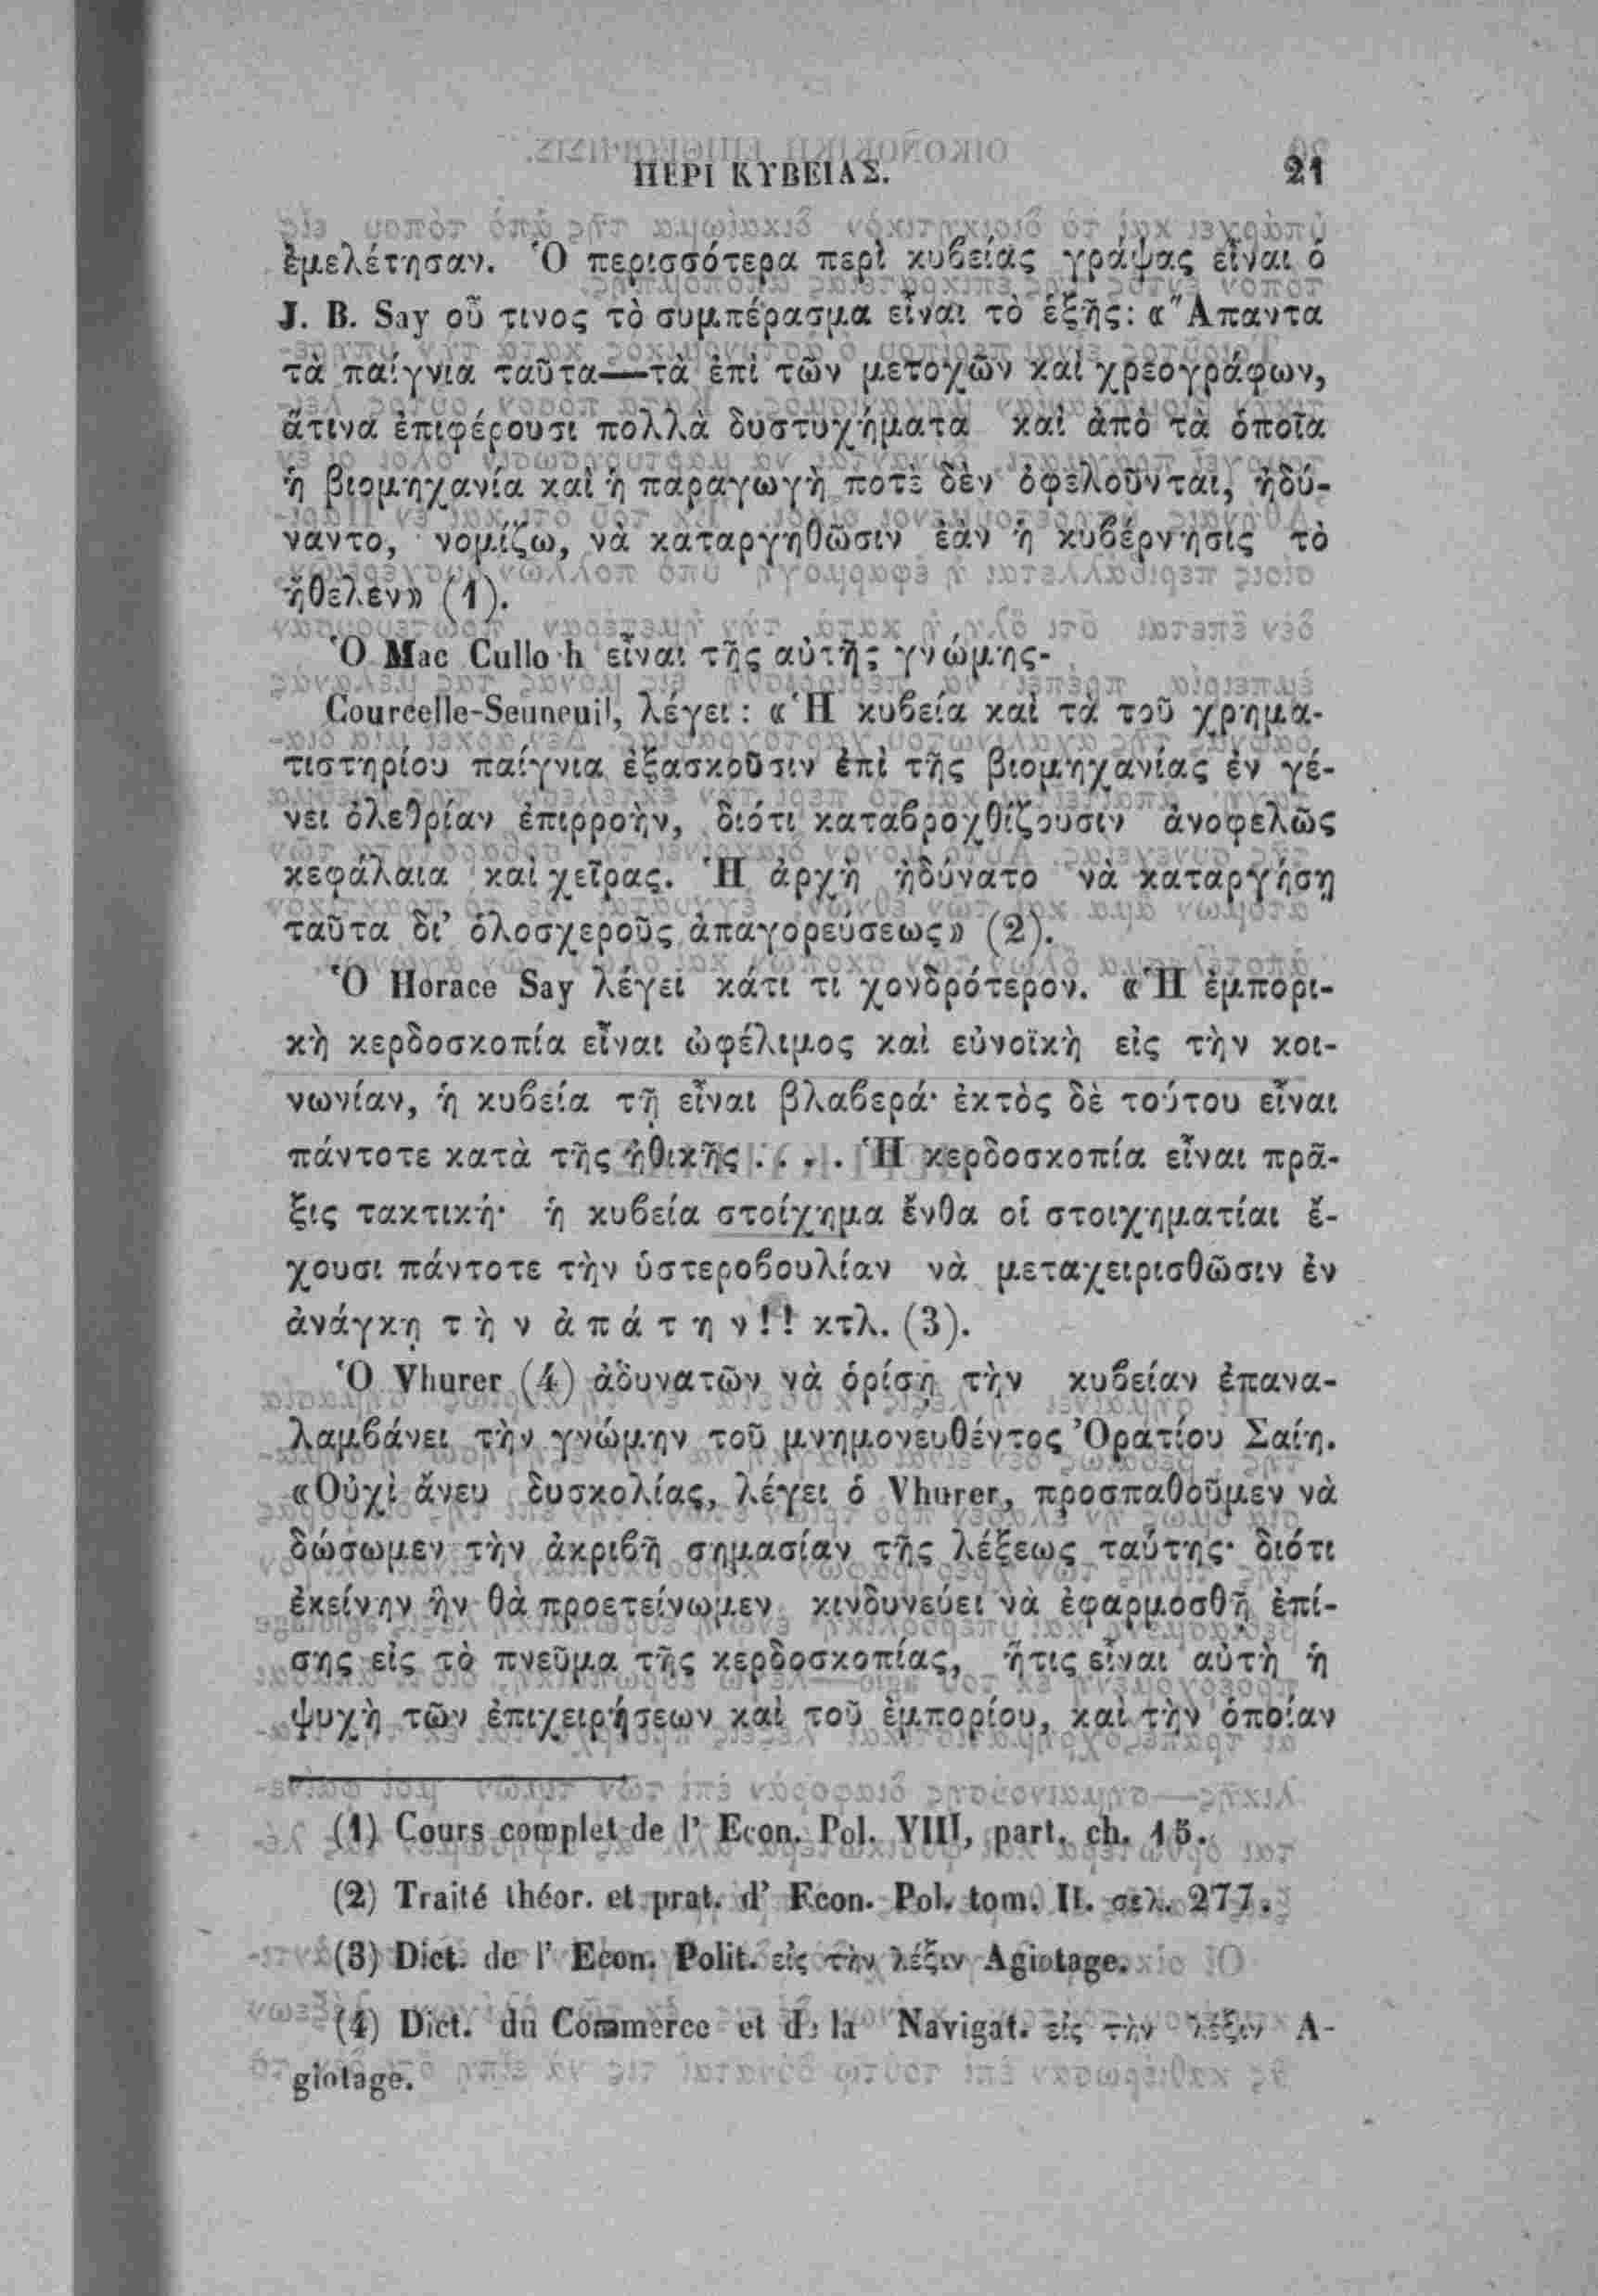 ΠΕΡΙ ΚΥΒΕΙΑΣ. 21
ἐμελέτησαν. Ὁ περισσότερα περὶ κυβείας γράψας εἶναι ὁ
J. B. Say οὗ τινος τὸ συμπέρασμα εἶναι τὸ ἑξῆς: «Ἅπαντα
τὰ παίγνια ταῦτα—τὰ ἐπὶ τῶν μετοχῶν καὶ χρεογράφων,
ἅτινα ἐπιφέρουσι πολλὰ δυστυχήματα καὶ ἀπὸ τὰ ὁποῖα
ἡ βιομηχανία καὶ ἡ παραγωγὴ ποτὲ δὲν ὀφελοῦνται, ἠδύ-
ναντο, νομίζω, νὰ καταργηθῶσιν ἐὰν ἡ κυβέρνησις τὸ
ἤθελεν» (1).
Ὁ Mac Culloch εἶναι τῆς αὐτῆς γνώμης-
Courcelle-Seuneuil, λέγει: «Ἡ κυβεία καὶ τὰ τοῦ χρημα-
τιστηρίου παίγνια ἐξασκοῦσιν ἐπὶ τῆς βιομηχανίας ἐν γέ-
νει ὀλεθρίαν ἐπιρροὴν, διότι καταβροχθίζουσιν ἀνοφελῶς
κεφάλαια καὶ χεῖρας. Ἡ ἀρχὴ ἠδύνατο νὰ καταργήσῃ
ταῦτα δι’ ὁλοσχεροῦς ἀπαγορεύσεως» (2).
Ὁ Horace Say λέγει κάτι τι χονδρότερον. «Ἡ ἐμπορι-
κὴ κερδοσκοπία εἶναι ὠφέλιμος καὶ εὐνοϊκὴ εἰς τὴν κοι-
νωνίαν, ἡ κυβεία τῇ εἶναι βλαβερά· ἐκτὸς δὲ τούτου εἶναι
πάντοτε κατὰ τῆς ἠθικῆς . . . . Ἡ κερδοσκοπία εἶναι πρᾶ-
ξις τακτική· ἡ κυβεία στοίχημα ἔνθα οἱ στοιχηματίαι ἔ-
χουσι πάντοτε τὴν ὑστεροβουλίαν νὰ μεταχειρισθῶσιν ἐν
ἀνάγκῃ τ ὴ ν ἀ π ά τ η ν!! κτλ. (3).
Ὁ Vhurer (4) ἀδυνατῶν νὰ ὁρίσῃ τὴν κυβείαν ἐπανα-
λαμβάνει τὴν γνώμην τοῦ μνημονευθέντος Ὁρατίου Σαίη.
«Οὐχὶ ἄνευ δυσκολίας, λέγει ὁ Vhurer, προσπαθοῦμεν νὰ
δώσωμεν τὴν ἀκριβῆ σημασίαν τῆς λέξεως ταύτης· διότι
ἐκείνην ἣν θὰ προετείνωμεν κινδυνεύει νὰ ἐφαρμοσθῇ ἐπί-
σης εἰς τὸ πνεῦμα τῆς κερδοσκοπίας, ἥτις εἶναι αὐτὴ ἡ
ψυχὴ τῶν ἐπιχειρήσεων καὶ τοῦ ἐμπορίου, καὶ τὴν ὁποίαν
(1) Cours complet de l’ Econ. Pol. VIII, part. ch. 15.
(2) Traité théor. et prat. d’ Econ. Pol. tom. II. σελ. 277.
(3) Dict. de l’ Econ. Polit. εἰς τὴν λέξιν Agiotage.
(4) Dict. du Commerce et de la Navigat. εἰς τὴν λέξιν A-
giotage.